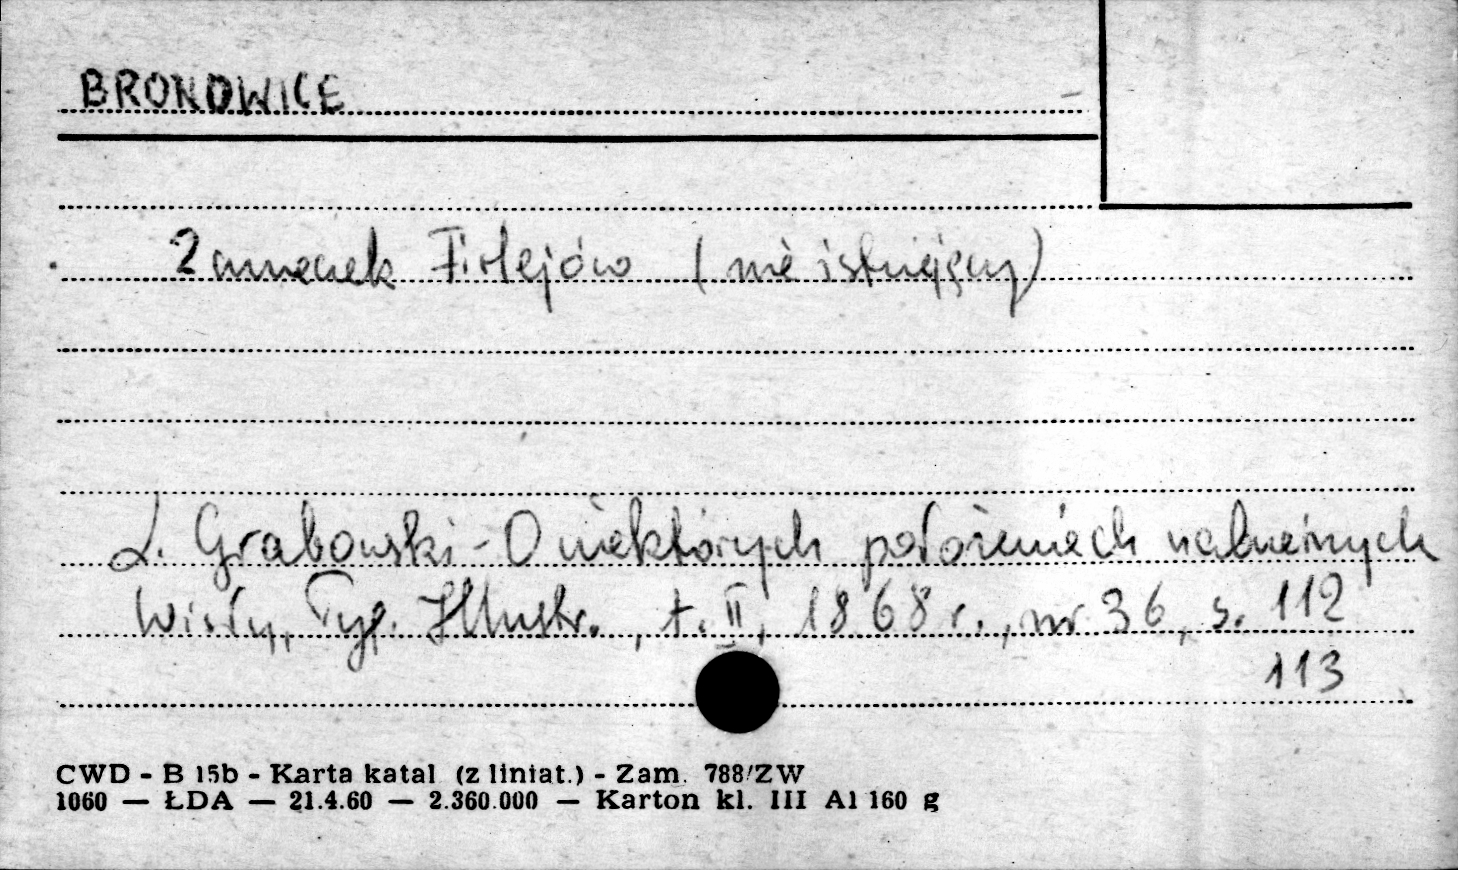 BRONOWICE
Zameczek Firlejów (nie istniejący)
L. Grabowski - O niektórych położeniach nadbrzeżnych
Wisły, Tyg. Illustr., t. II, 1868 r., nr 36, s. 112
113
CWD - B 15b - Karta katal (z liniat.) - Zam. 788/ZW
1060 — ŁDA — 21.4.60 — 2.360.000 — Karton kl. III A1 160 g